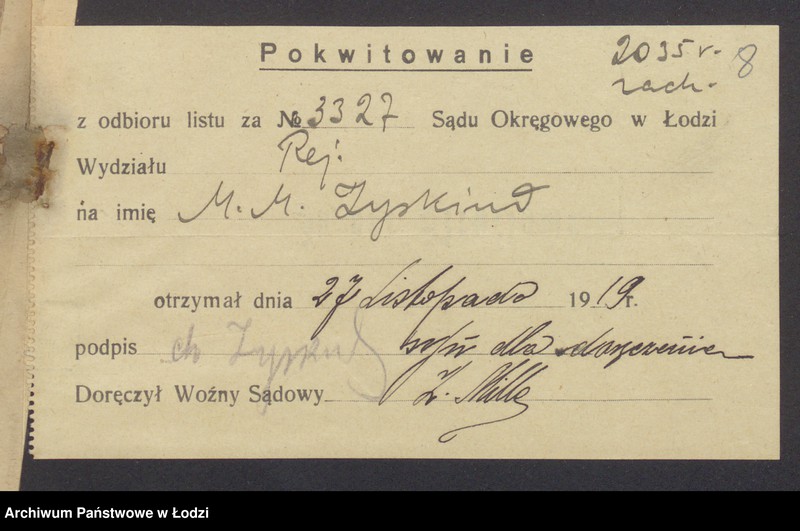 Pokwitowanie
2035 r. 8
rach.
z odbioru listu za № 3327 Sądu Okręgowego w Łodzi
Wydziału Rej.
na imię M. M. Zyskind
otrzymał dnia 27 Listopada 1919 r.
podpis Ch Zyskind syn dla doręczenia
Doręczył Woźny Sądowy Z. Mille
Archiwum Państwowe w Łodzi